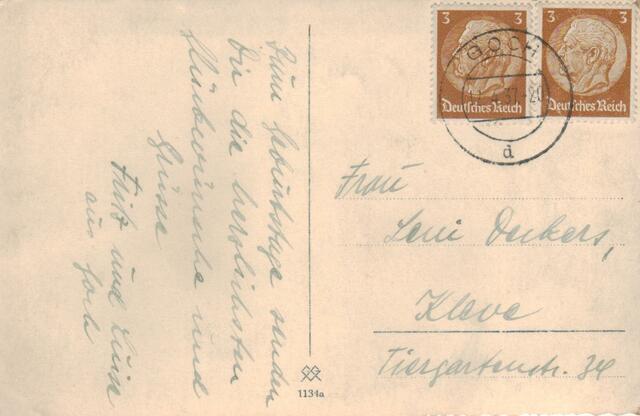 Zum Geburtstage senden
Dir die herzlichsten
Glückwünsche und
Grüsse
Fritz und Luise
aus Goch
3 3
Deutsches Reich
3 3
Deutsches Reich
GOCH
37.-20
d
Frau
Leni Derksen,
Kleve
Tiergartenstr. 34
1134a